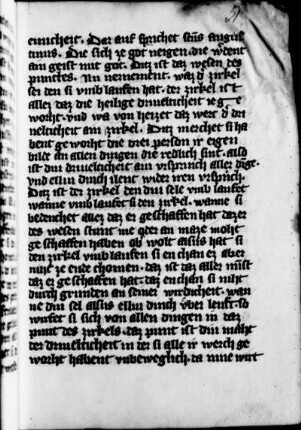 ewicheit. Daz auk sprichet sens augus
tinus. Die sich ze got neigen. die w'dent
am geist mit got. Ditz ist daz wesen des
punctes. Nu nement. waz d' zirkel
sei den si vmb laufen hat. der zirkel ist
allez daz die heilige driueltichheit ie
worht. vnd wa von heizet daz werc d' dri
ueltichheit am zirkel. Ditz merchet si ha
bent geworht die drei person ir eigen
bilde an allen dingen die redlich sint. also
ist diu driueltichheit am vrsprich aller dinge.
vnd elliu dinch ilent wider iren vrsprich.
Daz ist der zirkel den diu sele vmb laufet
wanne vmb laufet si den zirkel. wanne si
bedenchet allez daz er geschaffen hat daz er
des wesen stunt me oder an maze moht
geschaffen haben ob wolt alsus hat si
den zirkel vmb laufen si en chan ez aber
niht ze ende chomen. daz ist daz aller minst
daz er geschaffen hat. daz en chan si niht
durch grunden an seiner wirdicheit. wan
ne diu sel alsus elliu dinch vber leuft. so
wirfet si sich von allen dingen in daz
punt des zirkels. daz punt ist diu maht
der driueltichheit in der si alle ir werch ge
worht habent vnbeweglich. da inne wirt